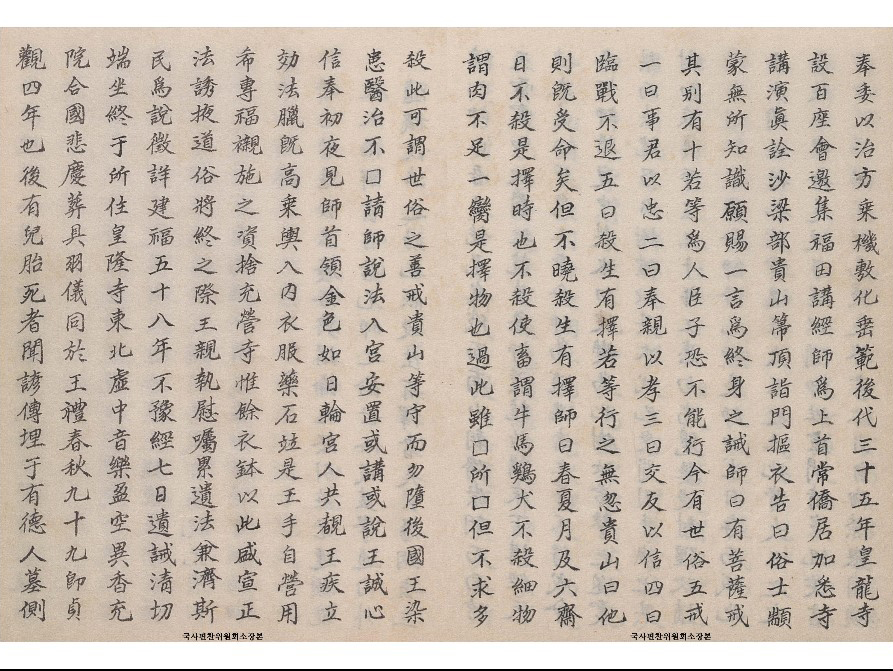 奉委以治方乘機敷化垂範後代三十五年皇龍寺
設百座會邀集福田講經師爲上首常僑居加悉寺
講演眞詮沙梁部貴山箒頂詣門摳衣告曰俗士顓
蒙無所知識願賜一言爲終身之誡師曰有菩薩戒
其別有十若等爲人臣子恐不能行今有世俗五戒
一曰事君以忠二曰奉親以孝三曰交友以信四曰
臨戰不退五曰殺生有擇若等行之無忽貴山曰他
則旣受命矣但不曉殺生有擇師曰春夏月及六齋
日不殺是擇時也不殺使畜謂牛馬鷄犬不殺細物
謂肉不足一臠是擇物也過此雖□所□但不求多
殺此可謂世俗之善戒貴山等守而勿墮後國王染
患醫治不□請師說法入宮安置或講或說王誠心
信奉初夜見師首領金色如日輪宮人共覩王疾立
効法臘旣高乘輿入內衣服藥石竝是王手自營用
希專福襯施之資捨充營寺惟餘衣鉢以此盛宣正
法誘掖道俗將終之際王親執慰囑累遺法兼濟斯
民爲說徵詳建福五十八年不豫經七日遺誡清切
端坐終于所住皇隆寺東北虛中音樂盈空異香充
院合國悲慶葬具羽儀同於王禮春秋九十九師貞
觀四年也後有兒胎死者聞諺傳埋于有德人墓側
국사편찬위원회소장본
국사편찬위원회소장본